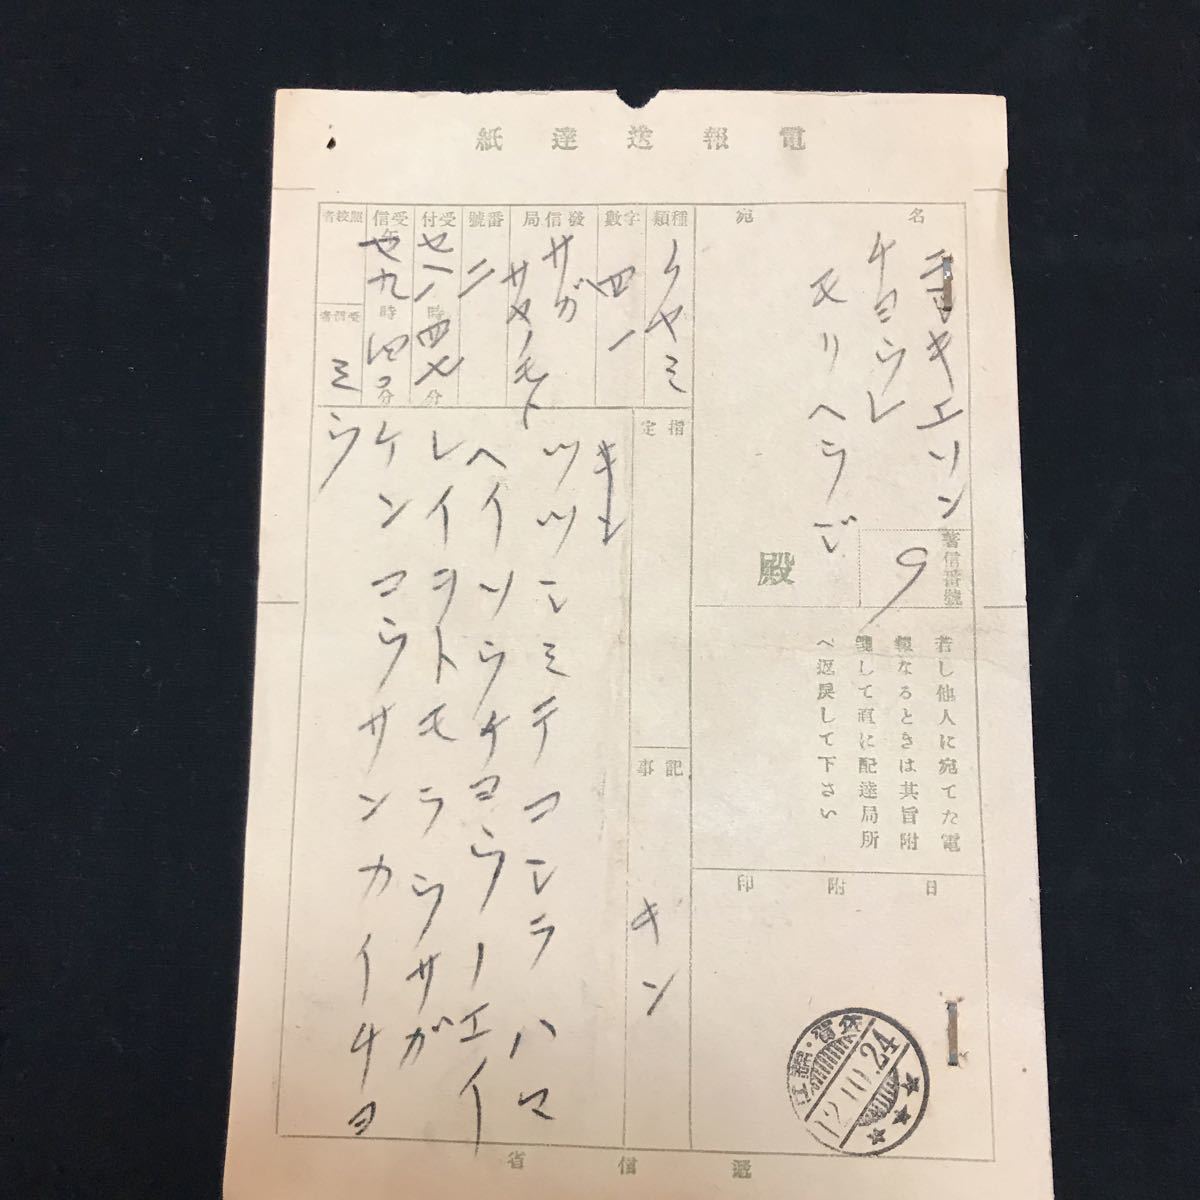 電報送達紙
宛名
キエソン
チヨウレ
モリヘラジ
殿
著信番號
9
若し他人に宛てた電
報なるときは其旨附
箋して直に配達局所
へ返戻して下さい
日附印
佐賀・錦江
12.10.24
種類
字數
四一
發信局
サガ
サカノモト
番號
二
受付
七八時四七分
受信
午
七九時四〇分
照校者
受信者
ミウ
指定
記事
キン
ツツシミテコシラハマ
ヘイソウチヨウノエイ
レイヲトモラウサガ
ケンコウサンカイチヨ
遞信省